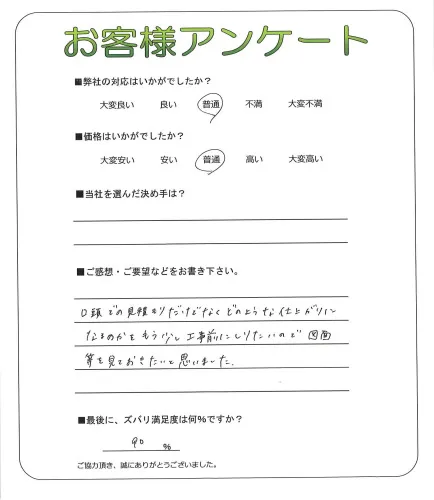 お客様アンケート
■弊社の対応はいかがでしたか？
大変良い 良い 普通 不満 大変不満
■価格はいかがでしたか？
大変安い 安い 普通 高い 大変高い
■当社を選んだ決め手は？
■ご感想・ご要望などをお書き下さい。
口頭での見積もりだけでなくどのような仕上がりに
なるのかをもう少し工事前にしりたいので図面
等を見ておきたいと思いました.
■最後に、ズバリ満足度は何％ですか？
90 %
ご協力頂き、誠にありがとうございました。